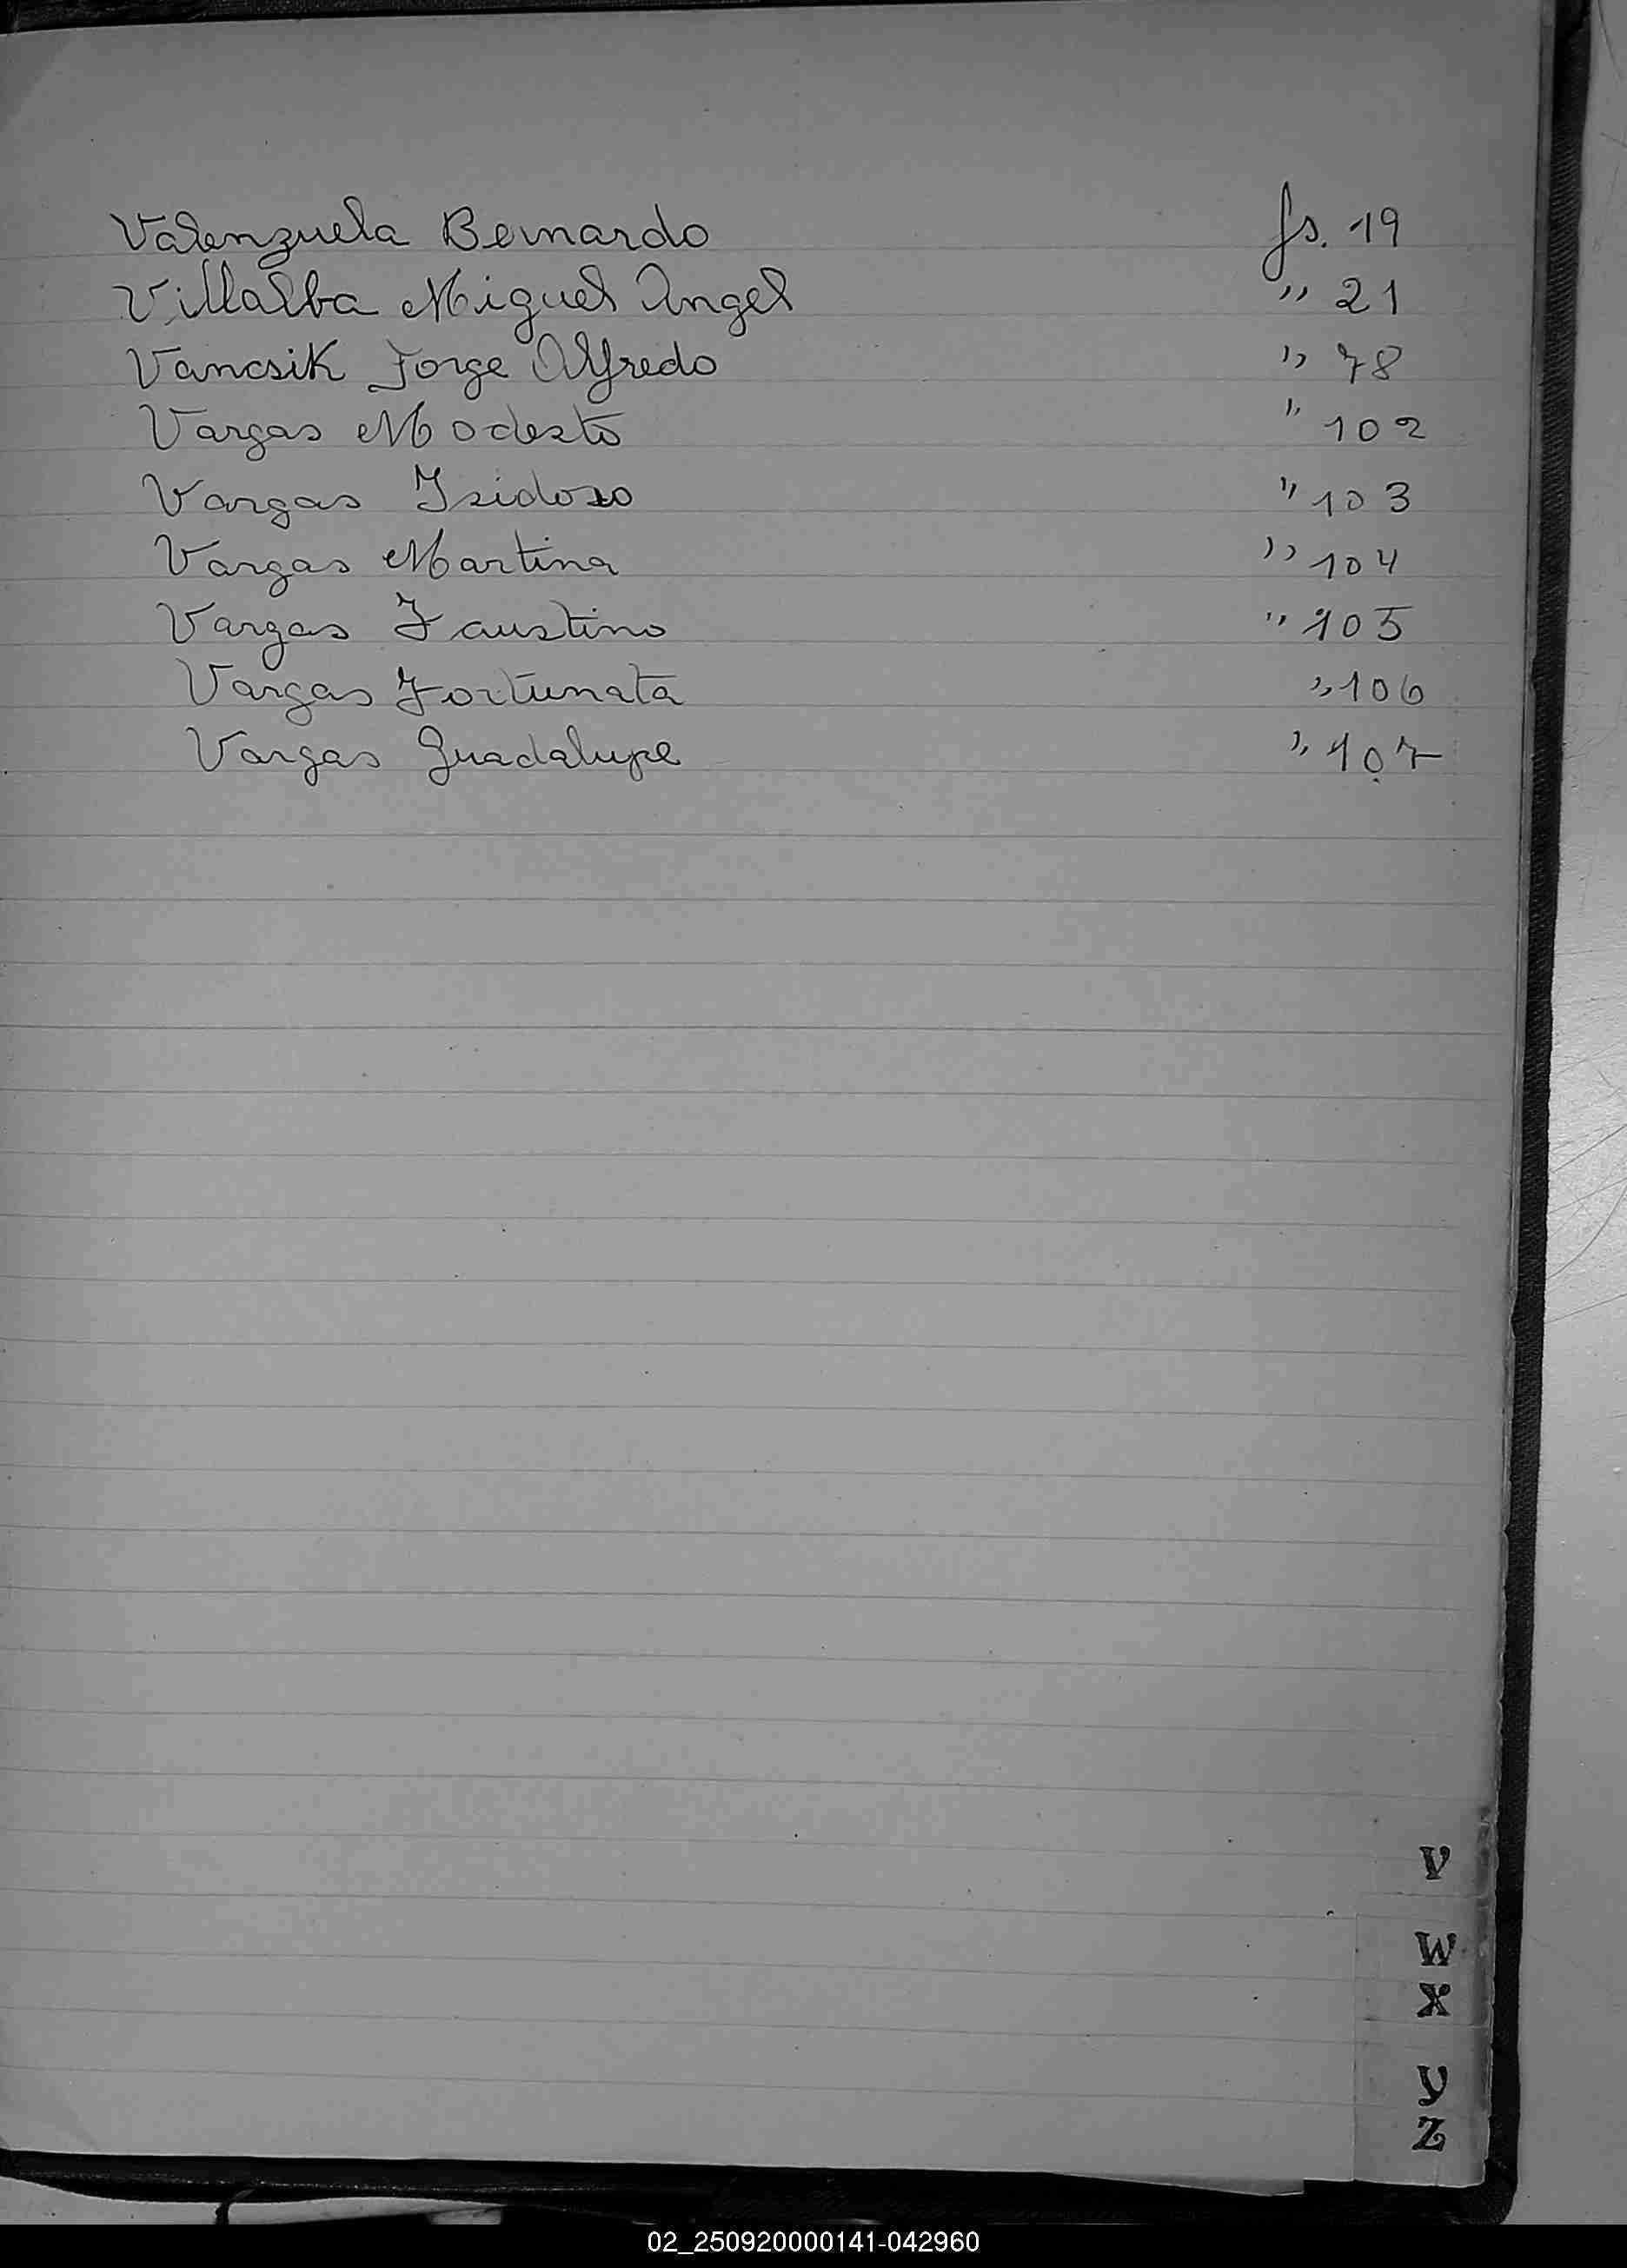 Valenzuela Bernardo fs. 19
Villalba Miguel Angel " 21
Vancsik Jorge Alfredo " 78
Vargas Modesto " 102
Vargas Isidoro " 103
Vargas Martina " 104
Vargas Faustino " 105
Vargas Fortunata " 106
Vargas Guadalupe " 107
V
W
X
Y
Z
02_250920000141-042960